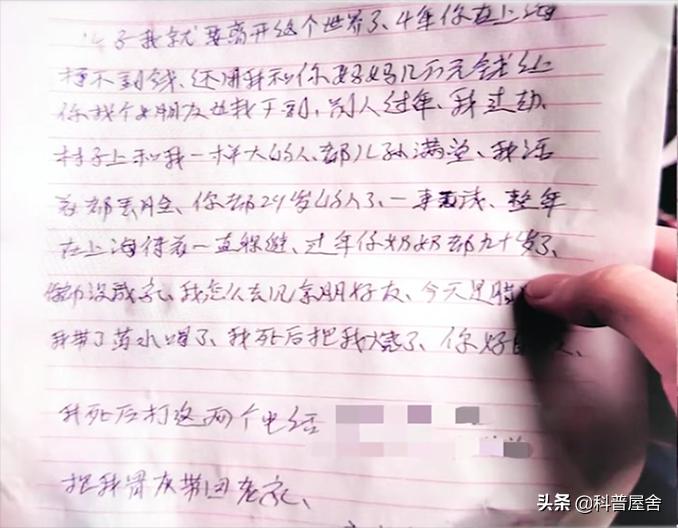 子我就要离开这个世界了、4年你在上海
挣不到钱、还用我和你妈妈几万元钱、让
你找个女朋友也找不到、别人过年、我过劫、
村子上和我一样大的人、都儿孙满堂、我活
着都丢脸、你都29岁的人了、一事无成、整年
在上海待着一直躲避、过年你奶奶都九十岁了、
你都没成家、我怎么去见亲朋好友、今天是腊
我带了药水喝了、我死后把我烧了、你好自
我死后打这两个电话
把我骨灰带回老家、
头条 @科普屋舍